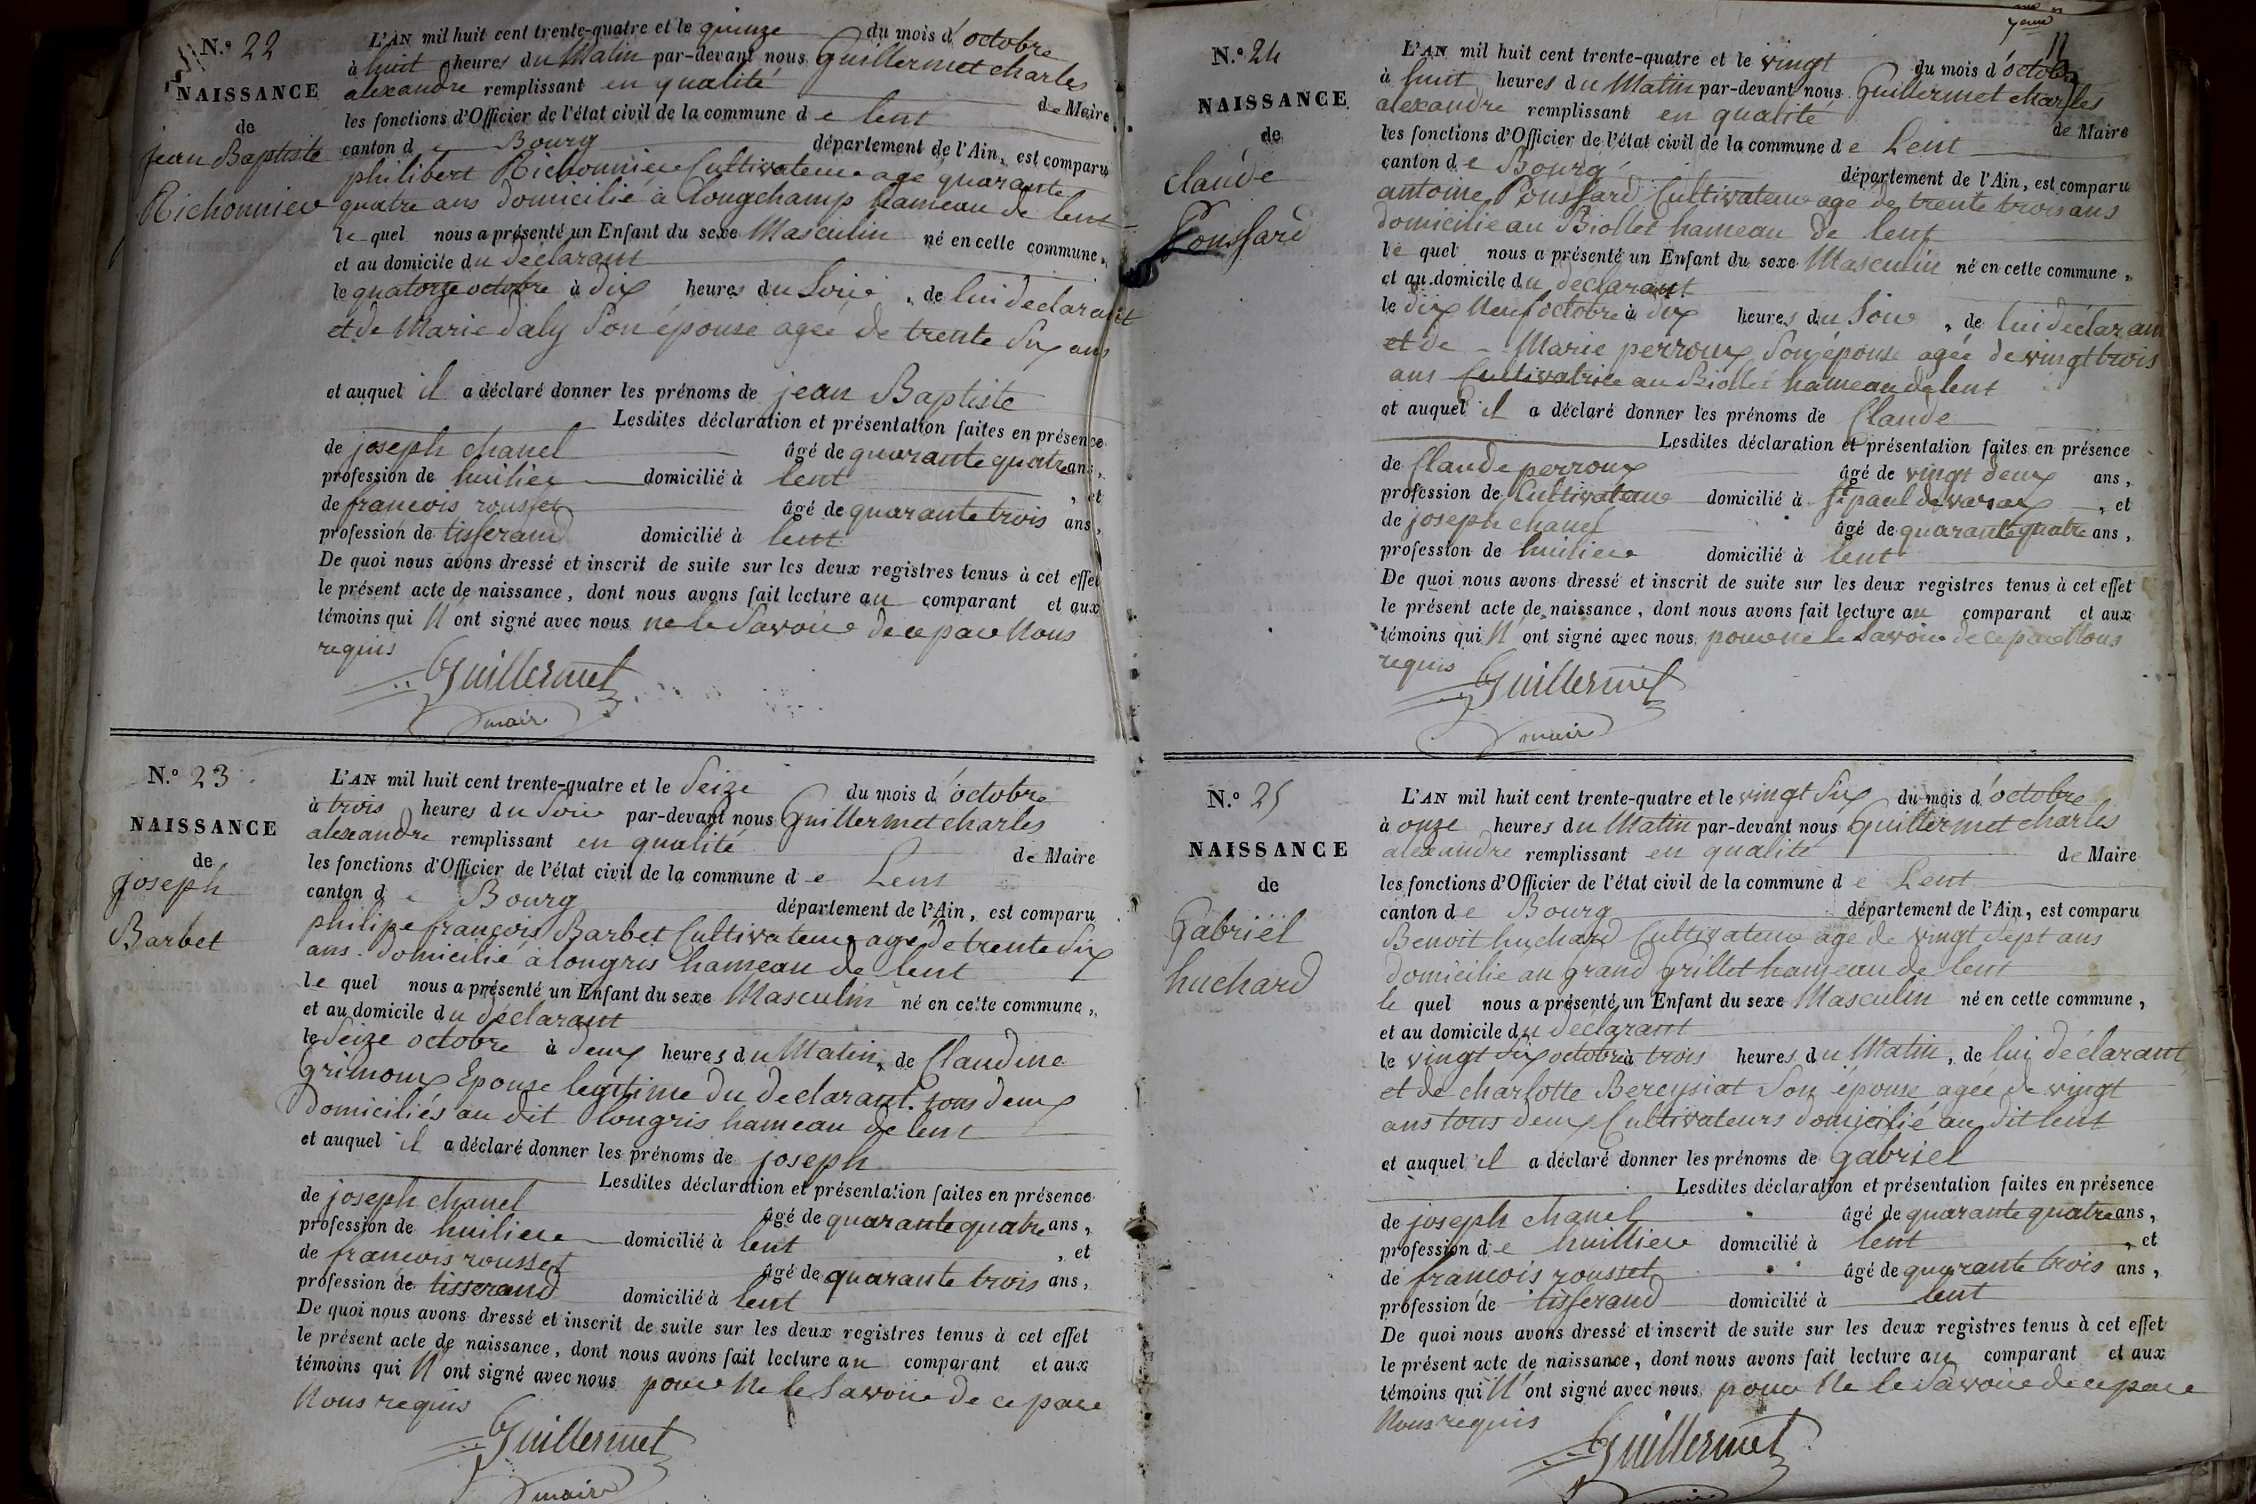 N.° 22
NAISSANCE
de
jean Baptiste
Richonnier
L'AN mil huit cent trente-quatre et le quinze du mois d'octobre
à huit heures du Matin par-devant nous Guillermet charles
alexandre remplissant en qualité de Maire
les fonctions d'Officier de l'état civil de la commune de lent
canton de Bourg département de l'Ain, est comparu
philibert Richonnier Cultivateur agé quarante
quatre ans domicilié à longchamp hameau de lent
le quel nous a présenté un Enfant du sexe Masculin né en cette commune,
et au domicile du déclarant
le quatorze octobre à dix heures du Soir, de lui declarant
et de Marie daly Son épouse agée de trente Six ans
et auquel il a déclaré donner les prénoms de jean Baptiste
Lesdites déclaration et présentation faites en présence
de joseph chanel âgé de quarante quatre ans,
profession de huilier domicilié à lent, et
de francois rousset âgé de quarante trois ans,
profession de tisserand domicilié à lent
De quoi nous avons dressé et inscrit de suite sur les deux registres tenus à cet effet
le présent acte de naissance, dont nous avons fait lecture au comparant et aux
témoins qui N'ont signé avec nous ne le Savoir de ce par Nous
requis
Guillermet
maire
N.° 23
NAISSANCE
de
joseph
Barbet
L'AN mil huit cent trente-quatre et le Seize du mois d'octobre
à trois heures du Soir par-devant nous Guillermet charles
alexandre remplissant en qualité de Maire
les fonctions d'Officier de l'état civil de la commune de Lent
canton de Bourg département de l'Ain, est comparu
philipe françois Barbet Cultivateur agé de trente Six
ans domicilié à longris hameau de lent
le quel nous a présenté un Enfant du sexe Masculin né en cette commune,
et au domicile du déclarant
le Seize octobre à deux heures du Matin, de Claudine
Grimoux Epouse legitime du declarant tous deux
domiciliés au dit longris hameau de lent
et auquel il a déclaré donner les prénoms de joseph
Lesdites déclaration et présentation faites en présence
de joseph chanel âgé de quarante quatre ans,
profession de huilier domicilié à lent, et
de francois rousset âgé de quarante trois ans,
profession de tisserand domicilié à lent
De quoi nous avons dressé et inscrit de suite sur les deux registres tenus à cet effet
le présent acte de naissance, dont nous avons fait lecture au comparant et aux
témoins qui N'ont signé avec nous pour Ne le Savoir de ce par
Nous requis
Guillermet
maire
11
N.° 24
NAISSANCE
de
claude
Poussard
L'AN mil huit cent trente-quatre et le vingt du mois d'octobre
à huit heures du Matin par-devant nous Guillermet charles
alexandre remplissant en qualité de Maire
les fonctions d'Officier de l'état civil de la commune de Lent
canton de Bourg département de l'Ain, est comparu
antoine Poussard Cultivateur agé de trente trois ans
domicilié au Biollet hameau de lent
le quel nous a présenté un Enfant du sexe Masculin né en cette commune,
et au domicile du déclarant
le dix Neuf octobre à dix heures du Soir, de lui déclarant
et de Marie perroux Son épouse agée de vingt trois
ans Cultivatrice au Biollet hameau de lent
et auquel il a déclaré donner les prénoms de Claude
Lesdites déclaration et présentation faites en présence
de Claude perroux âgé de vingt deux ans,
profession de Cultivateur domicilié à St paul de varax, et
de joseph chanel âgé de quarante quatre ans,
profession de huilier domicilié à lent
De quoi nous avons dressé et inscrit de suite sur les deux registres tenus à cet effet
le présent acte de naissance, dont nous avons fait lecture au comparant et aux
témoins qui N'ont signé avec nous pour ne le Savoir de ce par Nous
requis
Guillermet
maire
N.° 25
NAISSANCE
de
Gabriel
huchard
L'AN mil huit cent trente-quatre et le vingt Six du mois d'octobre
à onze heures du Matin par-devant nous Guillermet charles
alexandre remplissant en qualité de Maire
les fonctions d'Officier de l'état civil de la commune de Lent
canton de Bourg département de l'Ain, est comparu
Benoit huchard Cultivateur agé de vingt Sept ans
domicilié au grand Grillet hameau de lent
le quel nous a présenté un Enfant du sexe Masculin né en cette commune,
et au domicile du déclarant
le vingt Six octobre à trois heures du Matin, de lui déclarant
et de charlotte Bereysiat Son épouse agée de vingt
ans tous deux Cultivateurs domicilié au dit lent
et auquel il a déclaré donner les prénoms de Gabriel
Lesdites déclaration et présentation faites en présence
de joseph chanel âgé de quarante quatre ans,
profession de huillier domicilié à lent, et
de francois rousset âgé de quarante trois ans,
profession de tisserand domicilié à lent
De quoi nous avons dressé et inscrit de suite sur les deux registres tenus à cet effet
le présent acte de naissance, dont nous avons fait lecture au comparant et aux
témoins qui N'ont signé avec nous pour Ne le Savoir de ce par
Nous requis
Guillermet